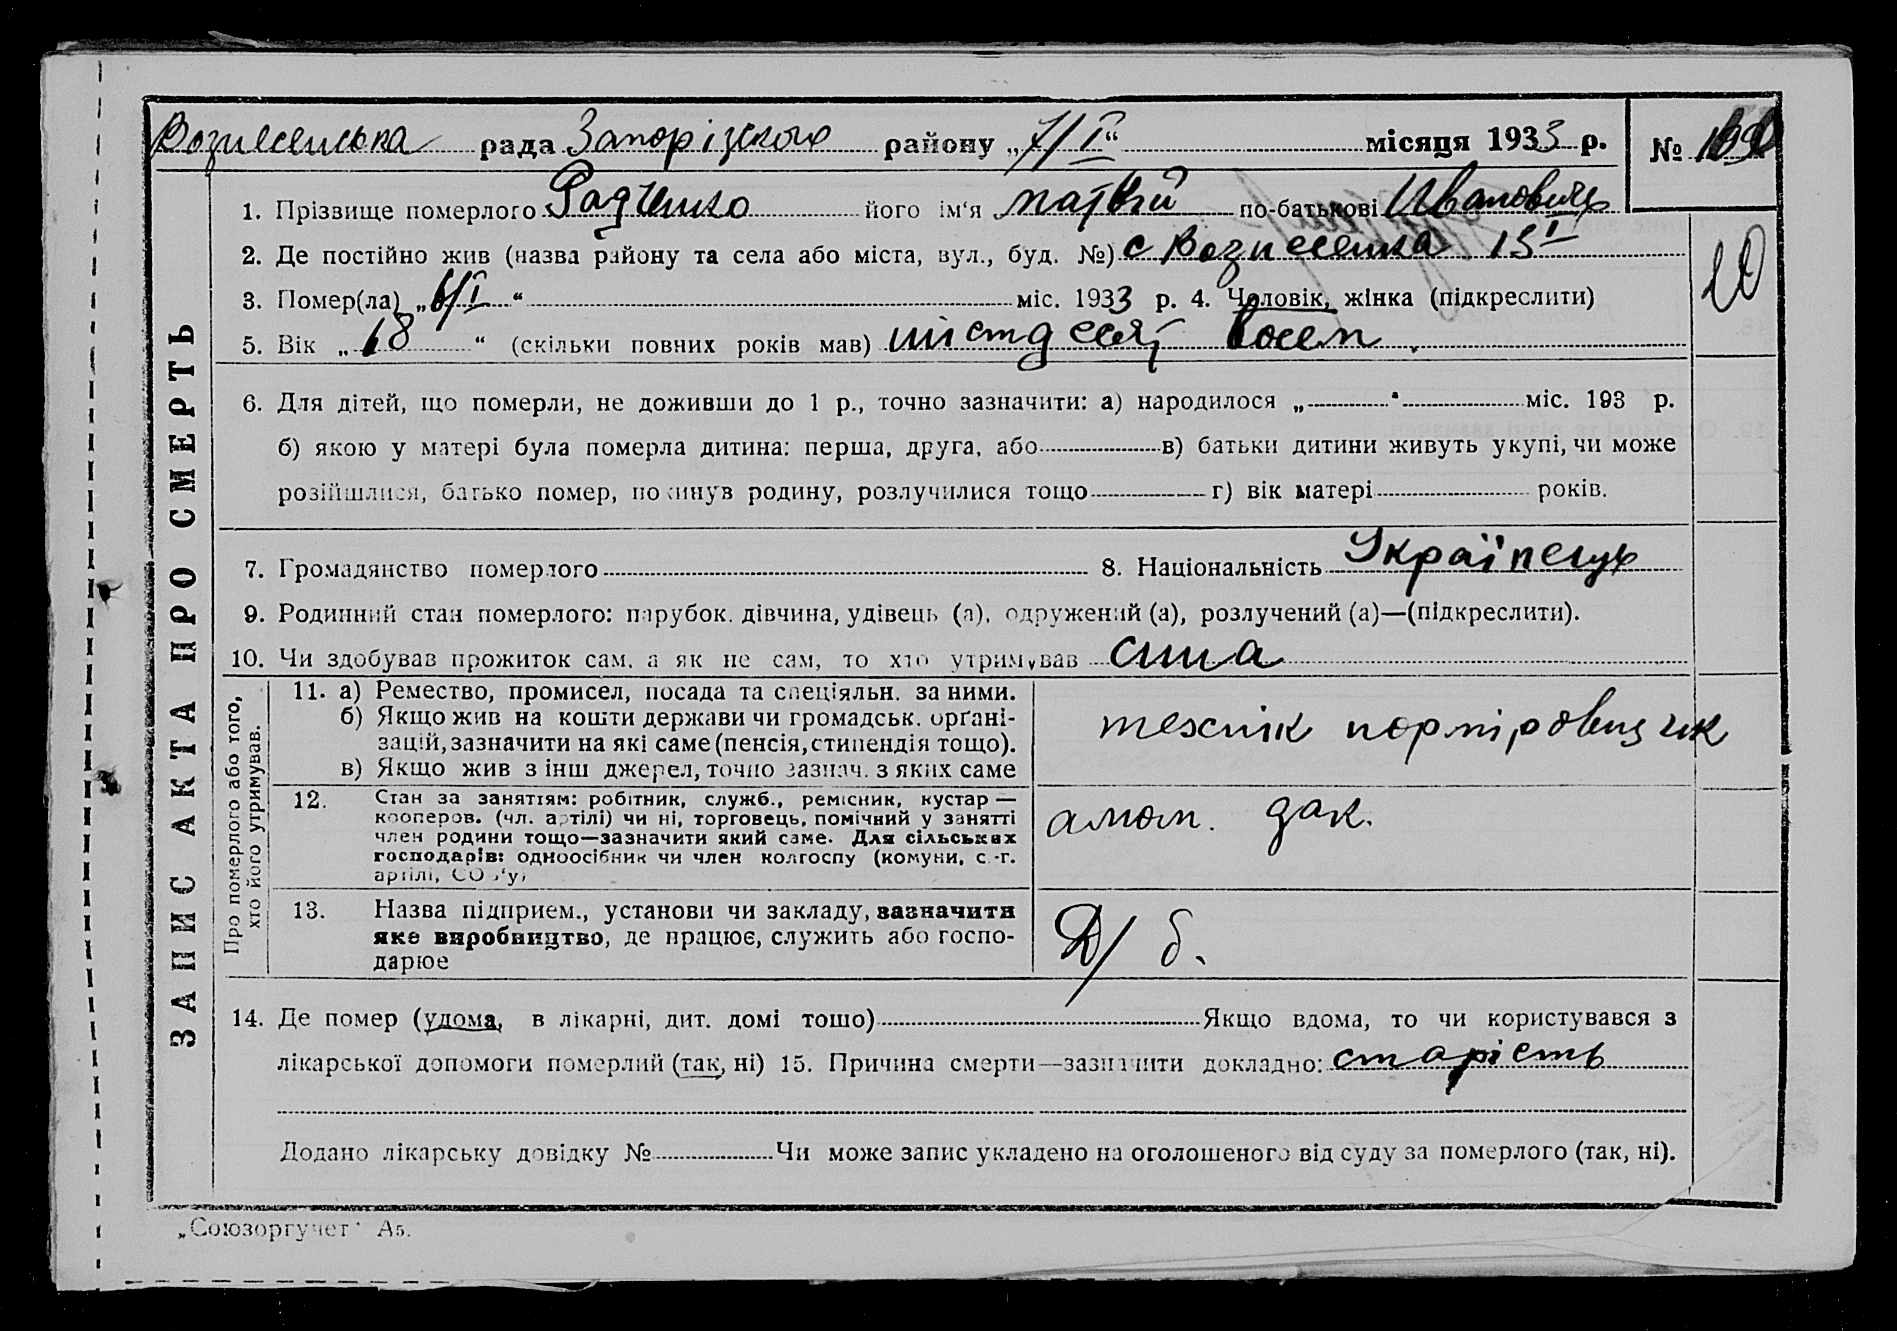 Вознесенська рада Запорізького району „7/I“ місяця 1933 р. №
1. Прізвище померлого Радченко його ім'я Матвій по-батькові Иванович
2. Де постійно жив (назва району та села або міста, вул., буд. №) с Вознесенка 15
3. Помер(ла) „6/I“ міс. 1933 р. 4. Чоловік, жінка (підкреслити)
5. Вік „68“ (скільки повних років мав) шістдесят восем.
6. Для дітей, що померли, не доживши до 1 р., точно зазначити: а) народилося „ “ міс. 193 р.
б) якою у матері була померла дитина: перша, друга, або в) батьки дитини живуть укупі, чи може
розійшлися, батько помер, покинув родину, розлучилися тощо г) вік матері років.
7. Громадянство померлого 8. Національність Українець
9. Родинний стан померлого: парубок. дівчина, удівець (а), одружений (а), розлучений (а)—(підкреслити).
10. Чи здобував прожиток сам, а як не сам, то хто утримував сина
ЗАПИС АКТА ПРО СМЕРТЬ
Про померлого або того,
хто його утримував.
11. а) Ремество, промисел, посада та спеціяльн. за ними.
б) Якщо жив на кошти держави чи громадськ. орґані-
зацій, зазначити на які саме (пенсія, стипендія тощо).
в) Якщо жив з інш джерел, точно зазнач. з яких саме
технік
12. Стан за заняттям: робітник, служб., ремісник, кустар —
кооперов. (чл. артілі) чи ні, торговець, помічний у занятті
член родини тощо—зазначити який саме. Для сільських
господарів: одноосібник чи член колгоспу (комуни, с.-г.
артілі, СОЗ'у)
13. Назва підприєм., установи чи закладу, зазначити
яке виробництво, де працює, служить або госпо-
дарює
Д/ б.
14. Де помер (удома, в лікарні, дит. домі тощо) Якщо вдома, то чи користувався з
лікарської допомоги померлий (так, ні) 15. Причина смерти—зазначити докладно: старість
Додано лікарську довідку № Чи може запис укладено на оголошеного від суду за померлого (так, ні).
„Союзоргучет“ А5.